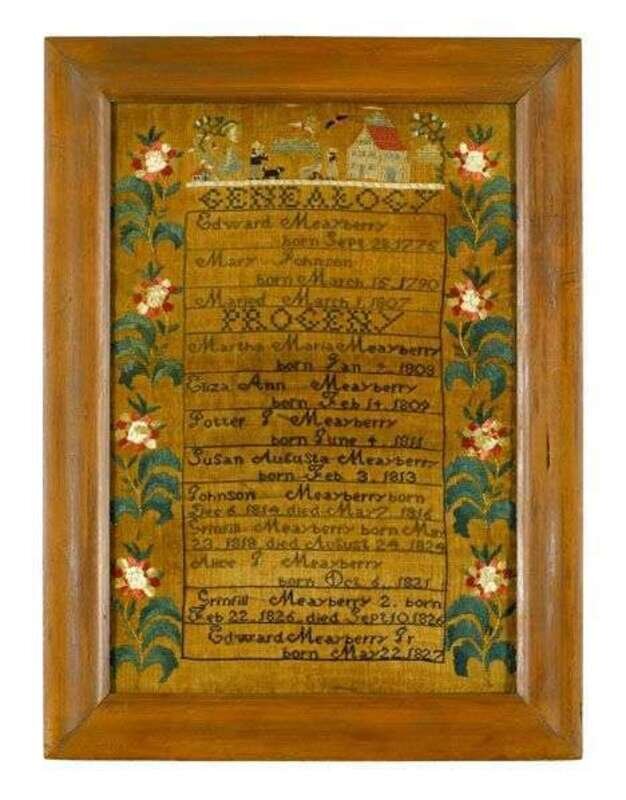 GENEALOGY
Edward Meayberry
born Sept 28, 1775
Mary Johnson
born March 15, 1790
Maried March 1, 1807
PROGENY
Martha Maria Meayberry
born Jan 1808
Eliza Ann Meayberry
born Feb 14, 1809
Potter J Meayberry
born June 4 1811
Susan Augusta Meayberry
born Feb 3, 1813
Johnson Meayberry born
Dec 6, 1814, died May 7, 1816
Grinfill Meayberry born May
23, 1818, died August 24, 1824
Alice J Meayberry
born Oct 6, 1821
Grinfill Meayberry 2, born
Feb 22, 1826, died Sept 10 1826
Edward Meayberry Jr
born May 22 1827